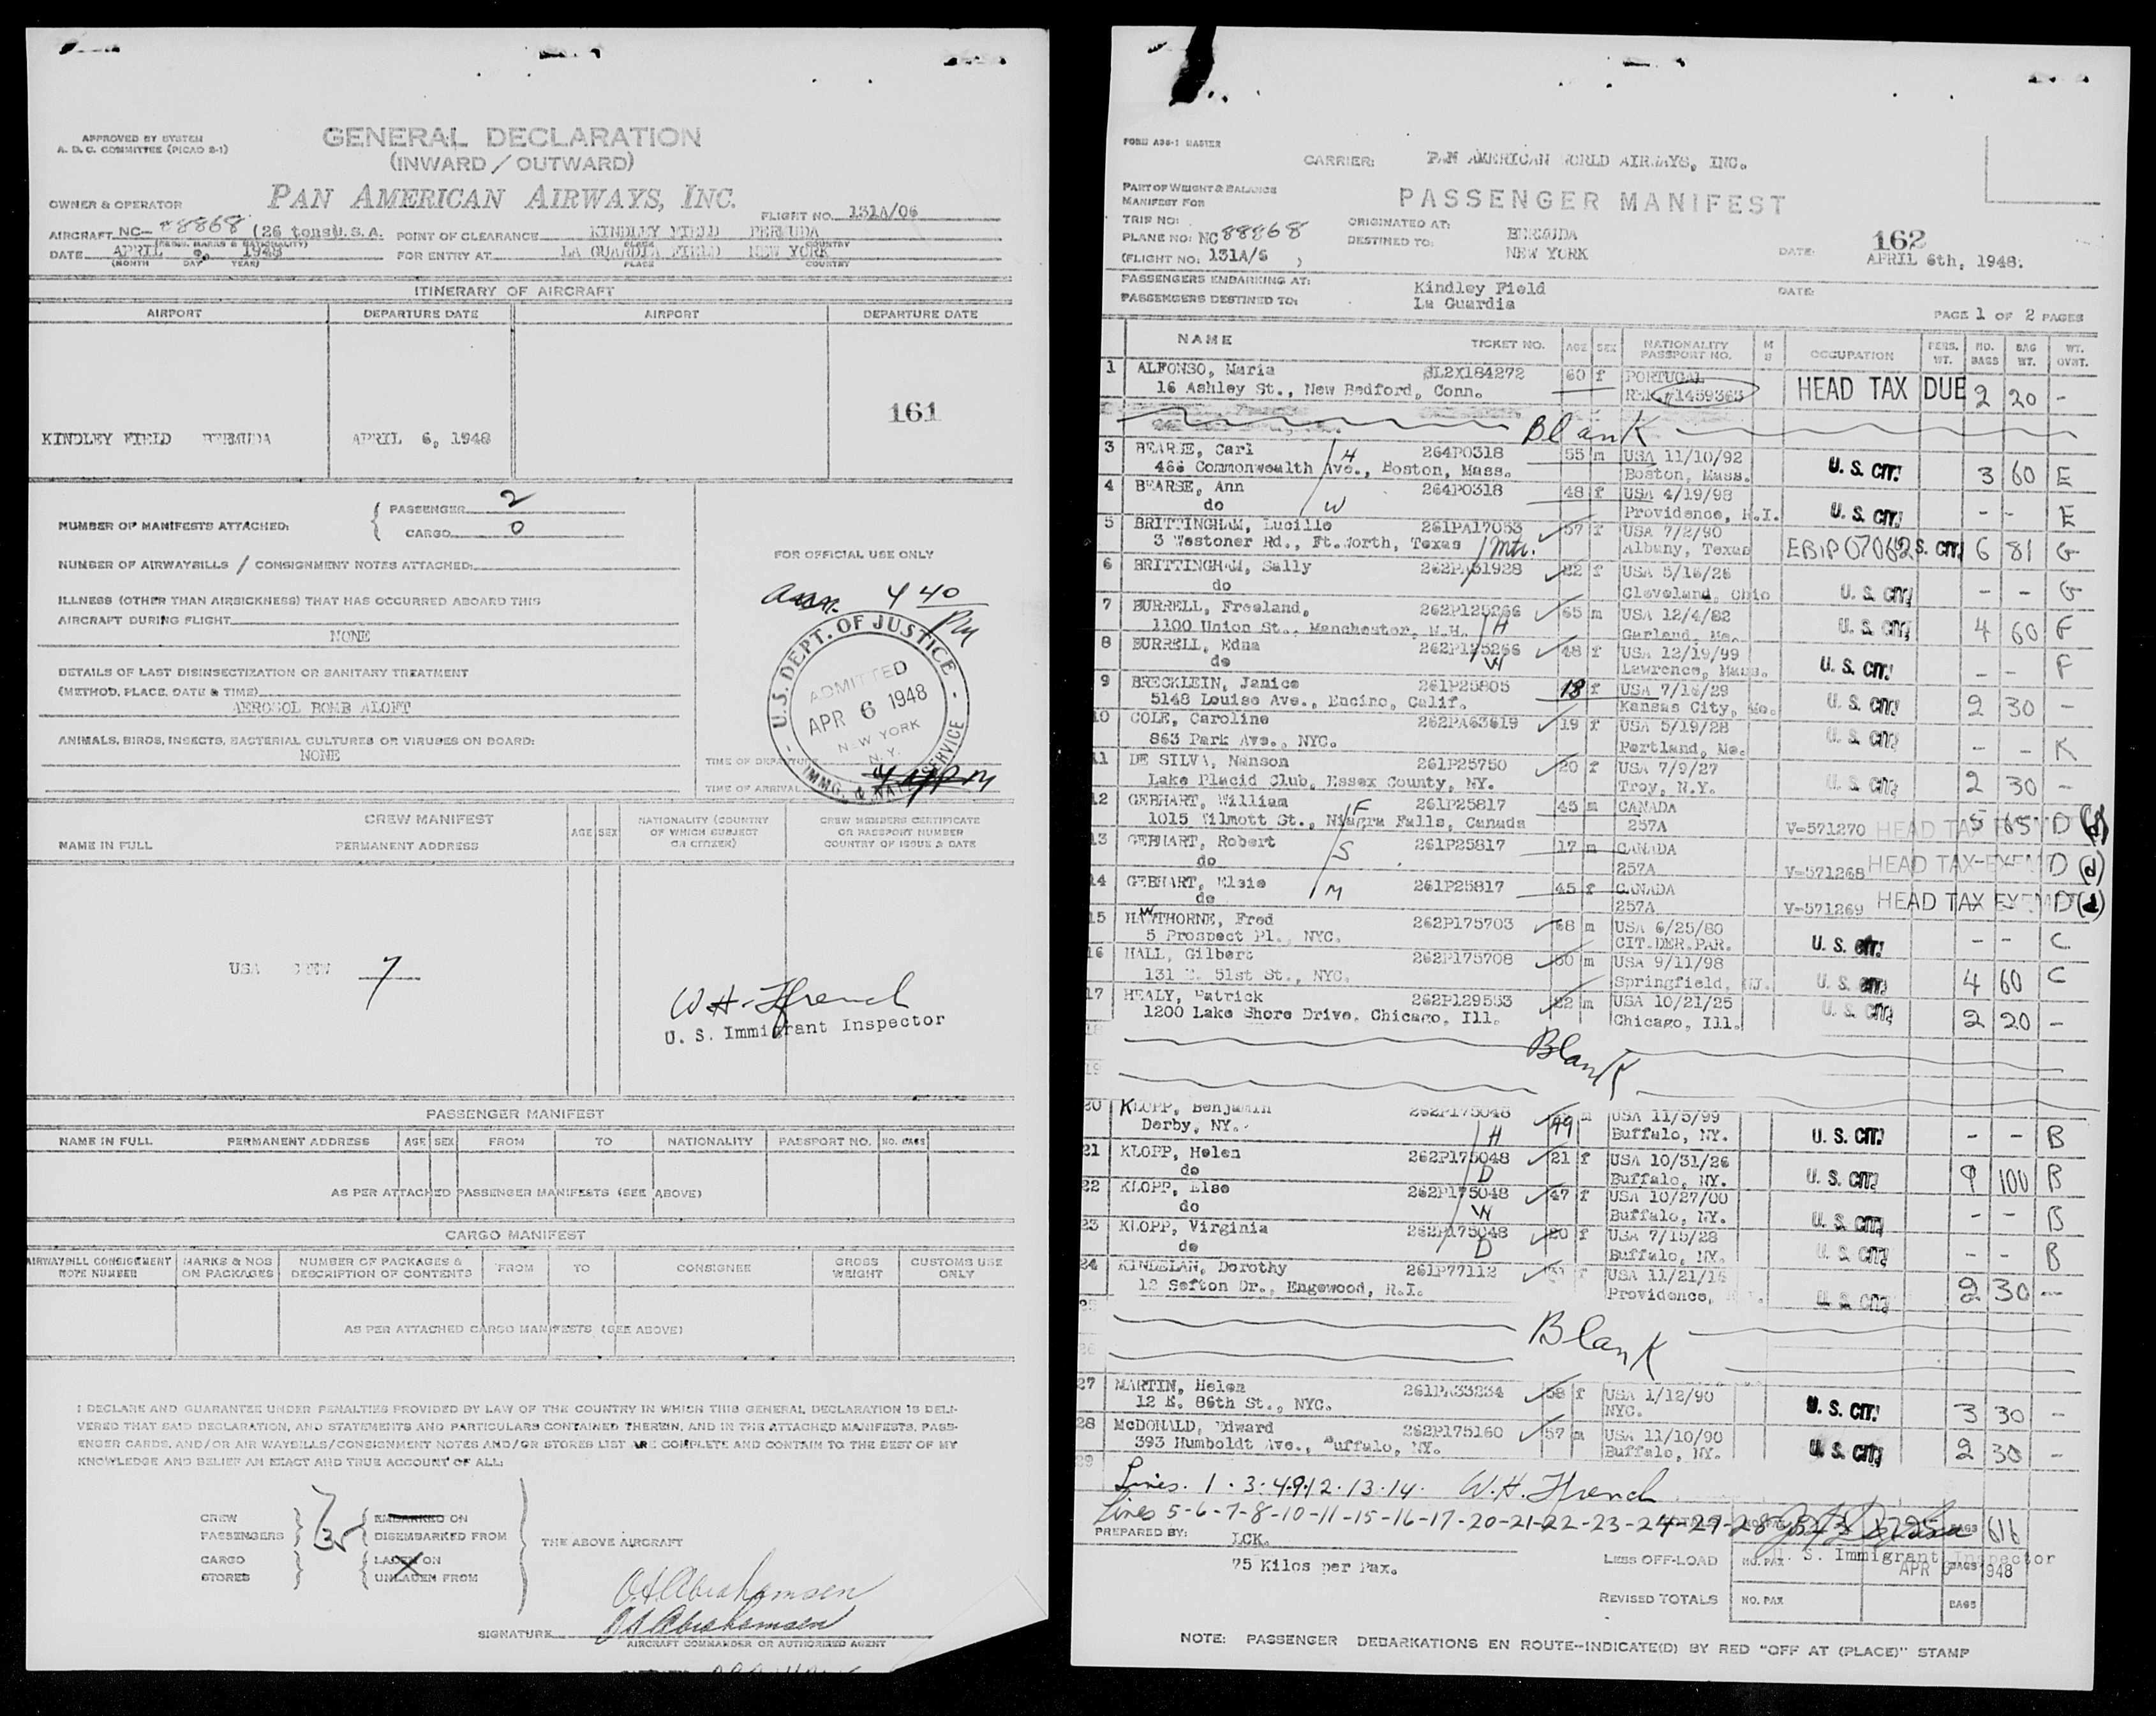 APPROVED BY SYSTEM
A. D. C. COMMITTEE (PICAO S-1)
GENERAL DECLARATION
(INWARD / OUTWARD)
OWNER & OPERATOR PAN AMERICAN AIRWAYS, INC. FLIGHT NO. 131A/06
AIRCRAFT NC- 88868 (26 tons) U.S.A. POINT OF CLEARANCE KINDLEY FIELD BERMUDA
(REGIS. MARKS & NATIONALITY) PLACE COUNTRY
DATE APRIL 6, 1948 FOR ENTRY AT LA GUARDIA FIELD NEW YORK
(MONTH DAY YEAR) PLACE COUNTRY
ITINERARY OF AIRCRAFT
AIRPORT DEPARTURE DATE AIRPORT DEPARTURE DATE
161
KINDLEY FIELD BERMUDA APRIL 6, 1948
NUMBER OF MANIFESTS ATTACHED: PASSENGER 2
CARGO 0
NUMBER OF AIRWAYBILLS / CONSIGNMENT NOTES ATTACHED:
ILLNESS (OTHER THAN AIRSICKNESS) THAT HAS OCCURRED ABOARD THIS
AIRCRAFT DURING FLIGHT
NONE
DETAILS OF LAST DISINSECTIZATION OR SANITARY TREATMENT
(METHOD, PLACE, DATE & TIME)
AEROSOL BOMB ALOFT
ANIMALS, BIRDS, INSECTS, BACTERIAL CULTURES OR VIRUSES ON BOARD:
NONE
FOR OFFICIAL USE ONLY
440 PM
U.S. DEPT. OF JUSTICE
ADMITTED
APR 6 1948
NEW YORK
N.Y.
IMMG. & NAT. SERVICE
TIME OF DEPARTURE
TIME OF ARRIVAL
CREW MANIFEST
NAME IN FULL PERMANENT ADDRESS AGE SEX NATIONALITY (COUNTRY OF WHICH SUBJECT OR CITIZEN) CREW MEMBERS CERTIFICATE OR PASSPORT NUMBER COUNTRY OF ISSUE & DATE
USA CREW 7
W.H. Ffrench
U. S. Immigrant Inspector
PASSENGER MANIFEST
NAME IN FULL PERMANENT ADDRESS AGE SEX FROM TO NATIONALITY PASSPORT NO. NO. BAGS
AS PER ATTACHED PASSENGER MANIFESTS (SEE ABOVE)
CARGO MANIFEST
AIRWAYBILL CONSIGNMENT NOTE NUMBER MARKS & NOS ON PACKAGES NUMBER OF PACKAGES & DESCRIPTION OF CONTENTS FROM TO CONSIGNEE GROSS WEIGHT CUSTOMS USE ONLY
AS PER ATTACHED CARGO MANIFESTS (SEE ABOVE)
I DECLARE AND GUARANTEE UNDER PENALTIES PROVIDED BY LAW OF THE COUNTRY IN WHICH THIS GENERAL DECLARATION IS DELI-
VERED THAT SAID DECLARATION, AND STATEMENTS AND PARTICULARS CONTAINED THEREIN, AND IN THE ATTACHED MANIFESTS, PASS-
ENGER CARDS, AND/OR AIR WAYBILLS/CONSIGNMENT NOTES AND/OR STORES LIST ARE COMPLETE AND CONTAIN TO THE BEST OF MY
KNOWLEDGE AND BELIEF AN EXACT AND TRUE ACCOUNT OF ALL:
CREW EMBARKED ON
PASSENGERS DISEMBARKED FROM
THE ABOVE AIRCRAFT
CARGO LADEN ON
STORES UNLADEN FROM
O.A. Abrahamsen
SIGNATURE O A Abrahamsen
AIRCRAFT COMMANDER OR AUTHORIZED AGENT
FORM ASS-1 MASTER
CARRIER: PAN AMERICAN WORLD AIRWAYS, INC.
PART OF WEIGHT & BALANCE
MANIFEST FOR PASSENGER MANIFEST
TRIP NO: ORIGINATED AT: BERMUDA
PLANE NO: NC 88868 DESTINED TO: NEW YORK
162
(FLIGHT NO: 131A/6 ) DATE: APRIL 6th, 1948.
PASSENGERS EMBARKING AT: Kindley Field DATE:
PASSENGERS DESTINED TO: La Guardia
PAGE 1 OF 2 PAGES
NAME TICKET NO. AGE SEX NATIONALITY PASSPORT NO. M S OCCUPATION PERS. WT. NO. BAGS BAG WT. WT. OVWT.
1 ALFONSO, Maria SL2X184272 60 f PORTUGAL HEAD TAX DUE 2 20 -
16 Ashley St., New Bedford, Conn. 1459363
Blank
3 BEARSE, Carl H 264P0318 55 m USA 11/10/92 U. S. CIT. 3 60 E
466 Commonwealth Ave., Boston, Mass. Boston, Mass.
4 BEARSE, Ann 264P0318 48 f USA 4/19/98 U. S. CIT. - - E
do W Providence, R.I.
5 BRITTINGHAM, Lucille 261PA17053 57 f USA 7/2/90 6 81 G
3 Westoner Rd., Ft.Worth, Texas Mtr. Albany, Texas
6 BRITTINGHAM, Sally 262PA31928 22 f USA 5/16/26 U. S. CIT. - - G
do Cleveland, Ohio
7 BURRELL, Freeland, 262P125266 65 m USA 12/4/82 U. S. CIT. 4 60 F
1100 Union St., Manchester, N.H. H Garland, Me.
8 BURRELL, Edna 262P125266 48 f USA 12/19/99 U. S. CIT. - - F
do W Lawrence, Mass.
9 BRECKLEIN, Janice 261P25805 18 f USA 7/16/29 U. S. CIT. 2 30 -
5148 Louise Ave., Encino, Calif. Kansas City, Mo.
10 COLE, Caroline 262PA63619 19 f USA 5/19/28 U. S. CIT. - - K
863 Park Ave., NYC. Portland, Me.
11 DE SILVA, Nanson 261P25750 20 f USA 7/9/27 U. S. CIT. 2 30 -
Lake Placid Club, Essex County, NY. Troy, N.Y.
12 GEBHART, William F 261P25817 45 m CANADA 5 65 D
1015 Wilmott St., Niagra Falls, Canada 257A V-571270 HEAD TAX EXEMPT
13 GEBHART, Robert S 261P25817 17 m CANADA
do 257A V-571268 HEAD TAX-EXEMPT D (d)
14 GEBHART, Elsie M 261P25817 45 f CANADA
do 257A V-571269 HEAD TAX EXEMPT D (d)
15 HAWTHORNE, Fred 262P175703 68 m USA 6/25/80 U. S. CIT. - - C
5 Prospect Pl., NYC. CIT.DER.PAR.
16 HALL, Gilbert 262P175708 50 m USA 9/11/98 U. S. CIT. 4 60 C
131 E. 51st St., NYC. Springfield,
17 HEALY, Patrick 262P129553 22 m USA 10/21/25 U. S. CIT. 2 20 -
1200 Lake Shore Drive, Chicago, Ill. Chicago, Ill.
18
Blank
19
20 KLOPP, Benjamin 262P175048 49 m USA 11/5/99 U. S. CIT. - - B
Derby, NY. H Buffalo, NY.
21 KLOPP, Helen 262P175048 21 f USA 10/31/26 U. S. CIT. 9 100 B
do D Buffalo, NY.
22 KLOPP, Else 262P175048 47 f USA 10/27/00 U. S. CIT. - - B
do W Buffalo, NY.
23 KLOPP, Virginia 262P175048 20 f USA 7/15/28 U. S. CIT. - - B
do D Buffalo, NY.
24 KINDELAN, Dorothy 261P77112 f USA 11/21/16 U. S. CIT. 2 30 -
12 Sefton Dr., Engewood, R.I. Providence,
25
Blank
26
27 MARTIN, Helen 261PA33234 58 f USA 1/12/90 U. S. CIT. 3 30 -
12 E. 86th St., NYC. NYC.
28 McDONALD, Edward 262P175160 57 m USA 11/10/90 U. S. CIT. 2 30 -
393 Humboldt Ave., Buffalo, NY. Buffalo, NY.
29
Lines. 1 . 3. 4. 9. 12 . 13 . 14. W.H. Ffrench
Lines 5-6-7-8-10-11-15-16-17-20-21-22-23-24-27-28 616
PREPARED BY: LCK.
75 Kilos per Pax.
LESS OFF-LOAD NO. PAX BAGS
U. S. Immigrant Inspector
APR 6 1948
REVISED TOTALS NO. PAX BAGS
NOTE: PASSENGER DEBARKATIONS EN ROUTE--INDICATE(D) BY RED "OFF AT (PLACE)" STAMP